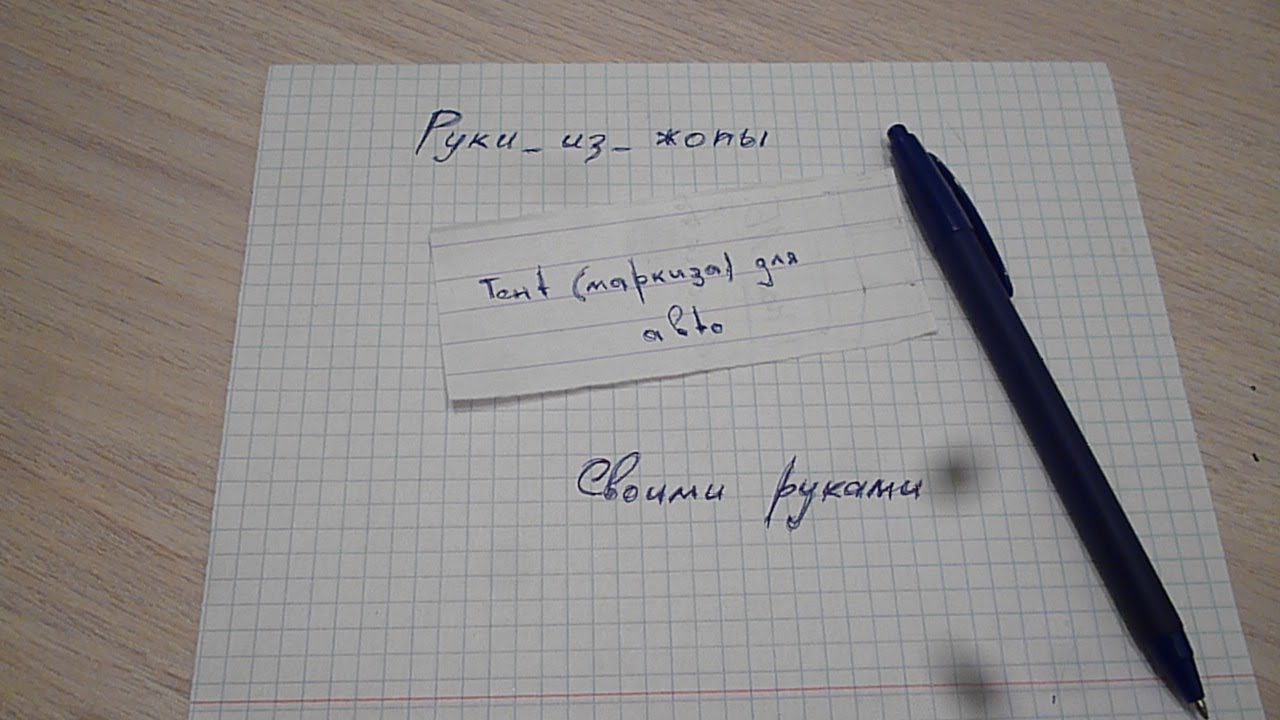 Руки_из_жопы
Тент (маркиза) для
авто
Своими руками